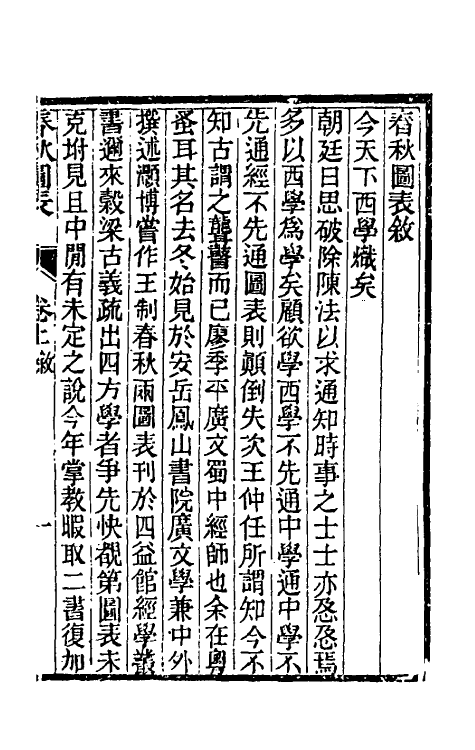 春秋圖表敘
今天下西學熾矣
朝廷日思破除陳法以求通知時事之士士亦恖恖焉
多以西學爲學矣顧欲學西學不先通中學通中學不
先通經不先通圖表則顛倒失次王仲任所謂知今不
知古謂之聾瞽而已廖季平廣文蜀中經師也余在粵
蚤耳其名去冬始見於安岳鳳山書院廣文學兼中外
撰述灝博嘗作王制春秋兩圖表刊於四益館經學叢
書邇來穀梁古義疏出四方學者爭先快覩第圖表未
克坿見且中閒有未定之說今年掌教暇取二書復加
春秋圖表
卷上敘
一